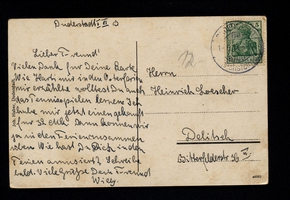 Duderstadt, I. II. 
Lieber Freund!
Vielen Dank für Deine Karte
Wie Harti mir in den Osterferien
mir erzählte wolltest Du auch
das Tennisspielen lernen. Ich
habe mir jetzt einen gekauft
für 22 Mk. Dann können wir
ja in den Ferien zusammen
üben. Wie hast Du Dich in den
Ferien amüsiert? Schreibe
bald. Viele Grüße Dein Freund
Willy.
12
Herrn
Heinrich Loescher
Delitsch
Bitterfelderstr.